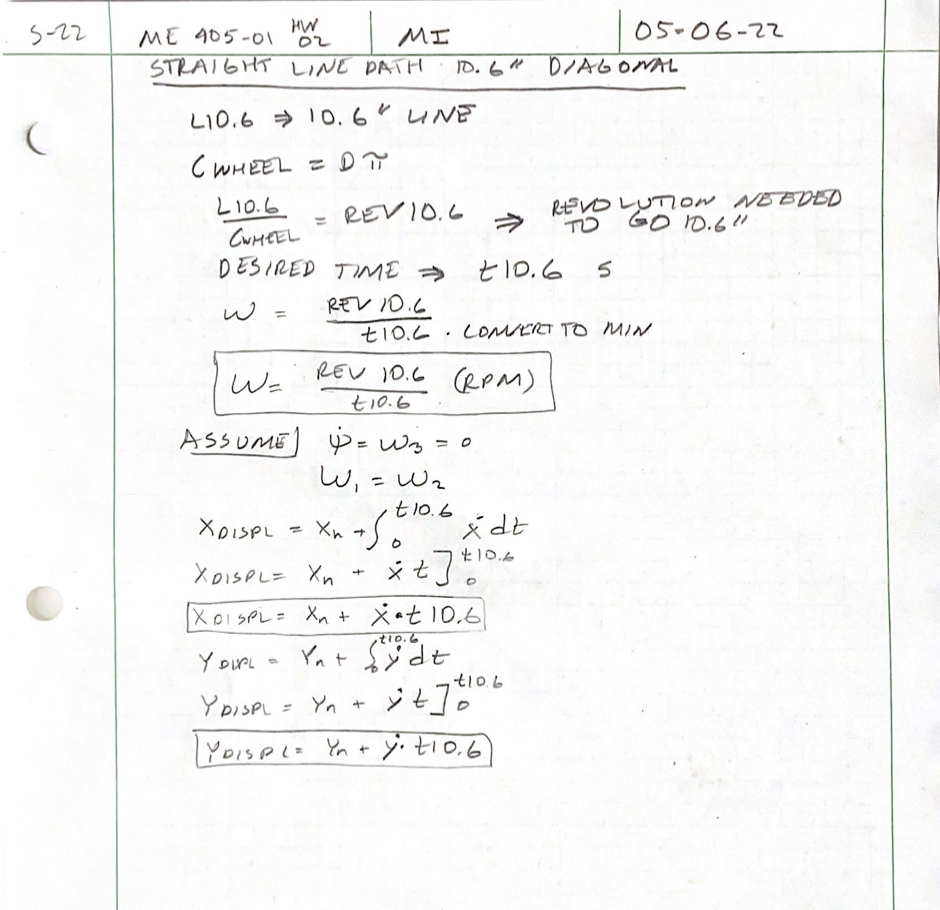 S-22 ME 405-01 HW 02 MI 05-06-22
STRAIGHT LINE PATH 10.6" DIAGONAL
L10.6 ⇒ 10.6" LINE
CWHEEL = Dπ
L10.6 / CWHEEL = REV10.6 ⇒ REVOLUTION NEEDED TO GO 10.6"
DESIRED TIME ⇒ t10.6 s
ω = REV 10.6 / t10.6 . CONVERT TO MIN
ω = REV 10.6 / t10.6 (RPM)
ASSUME] ψ̇ = ω₃ = 0
ω₁ = ω₂
XDISPL = Xn + ∫₀^t10.6 ẋ dt
XDISPL = Xn + ẋ t]₀^t10.6
XDISPL = Xn + ẋ • t10.6
YDISPL = Yn + ∫₀^t10.6 ẏ dt
YDISPL = Yn + ẏ t]₀^t10.6
YDISPL = Yn + ẏ · t10.6